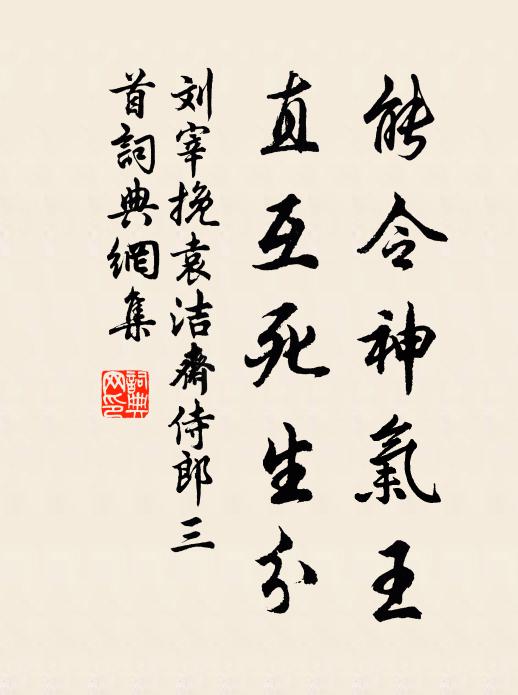 能令神氣王
直互死生分
刘宰挽袁洁齋侍郎三
首詞典網集
詞典
网印